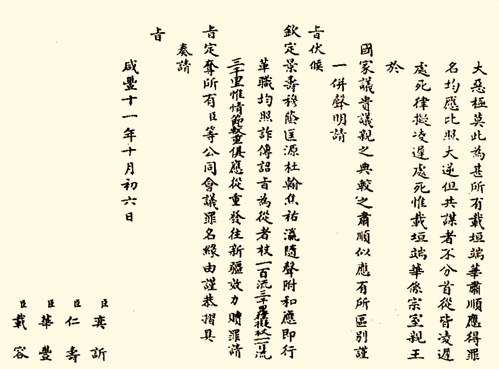 大惡極莫此為甚所有載垣端華肅順應得罪
名均應比照大逆但共謀者不分首從皆凌遲
處死律擬凌遲處死惟載垣端華係宗室親王
於
國家議貴議親之典較之肅順似應有所區別謹
一併聲明請
旨伏候
欽定景壽穆蔭匡源杜翰焦祐瀛隨聲附和應即行
革職均照詐傳詔旨為從者杖一百流三千里擬杖一百流
三千里惟情節較重俱應從重發往新疆效力贖罪請
旨定奪所有臣等公同會議罪名緣由謹恭摺具
奏請
旨
咸豐十一年十月初六日
臣奕訢
臣仁壽
臣華豐
臣載容